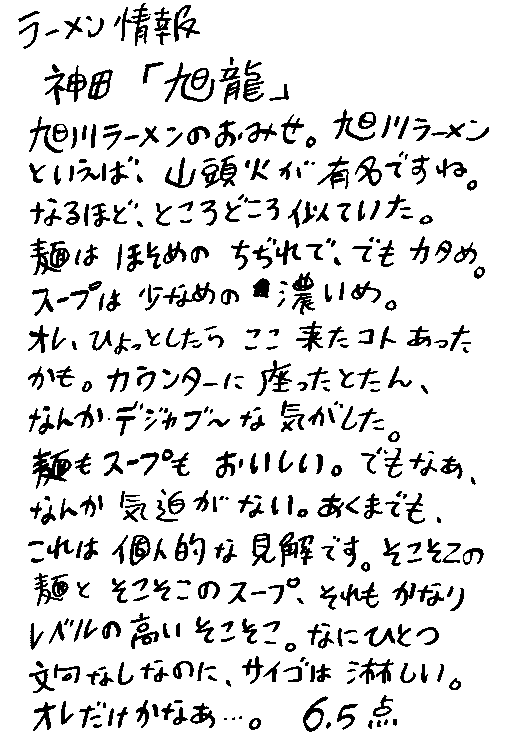 ラーメン情報
神田「旭龍」
旭川ラーメンのおみせ。旭川ラーメン
といえば、山頭火が有名ですね。
なるほど、ところどころ似ていた。
麺はほそめのちぢれで、でもカタめ。
スープは少なめの濃いめ。
オレ、ひょっとしたらここ来たコトあった
かも。カウンターに座ったとたん、
なんかデジャブ〜な気がした。
麺もスープもおいしい。でもなぁ、
なんか気迫がない。あくまでも、
これは個人的な見解です。そこそこの
麺とそこそこのスープ、それもかなり
レベルの高いそこそこ。なにひとつ
文句なしなのに、サイゴは淋しい。
オレだけかなぁ…。 6.5点